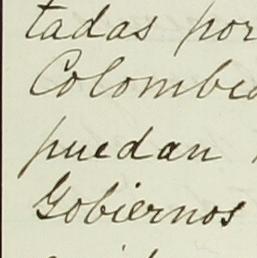 tadas por
Colombia
puedan
Gobiernos